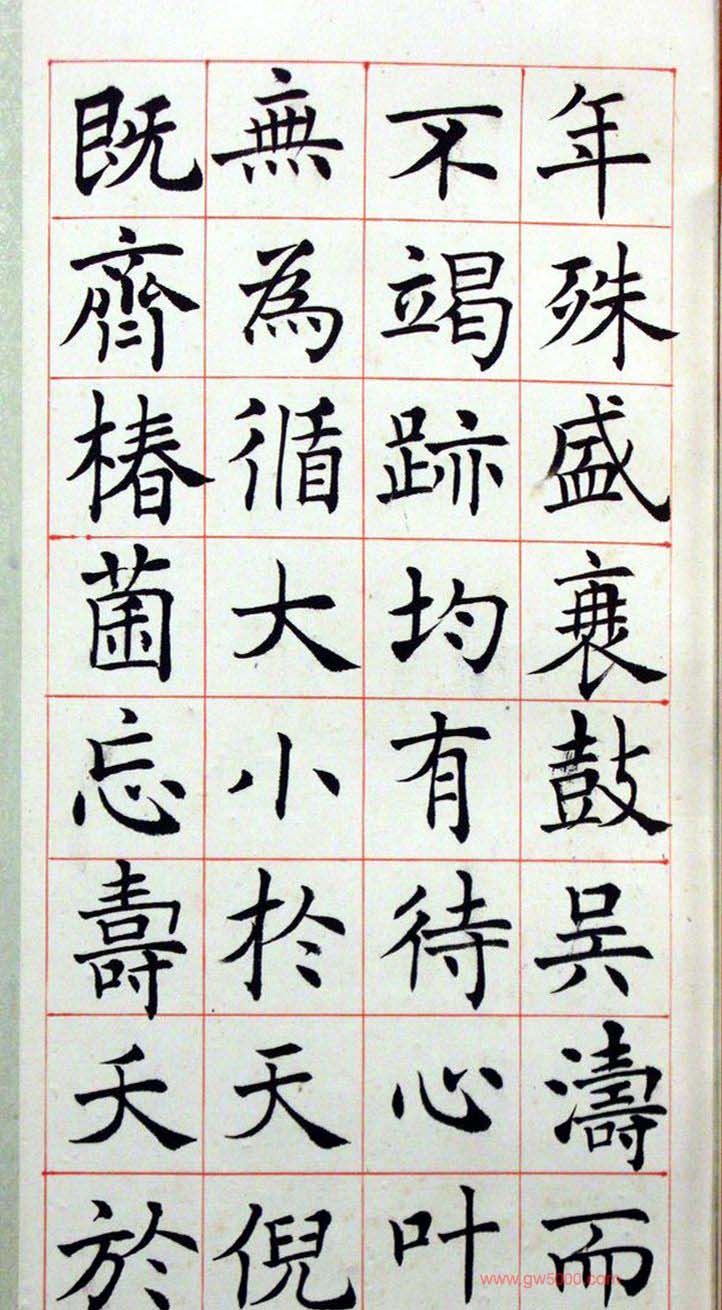 年殊盛衰鼓吴濤而
不竭跡均有待心叶
無為循大小於天倪
既齊椿菌忘壽夭於
www.gw5000.com